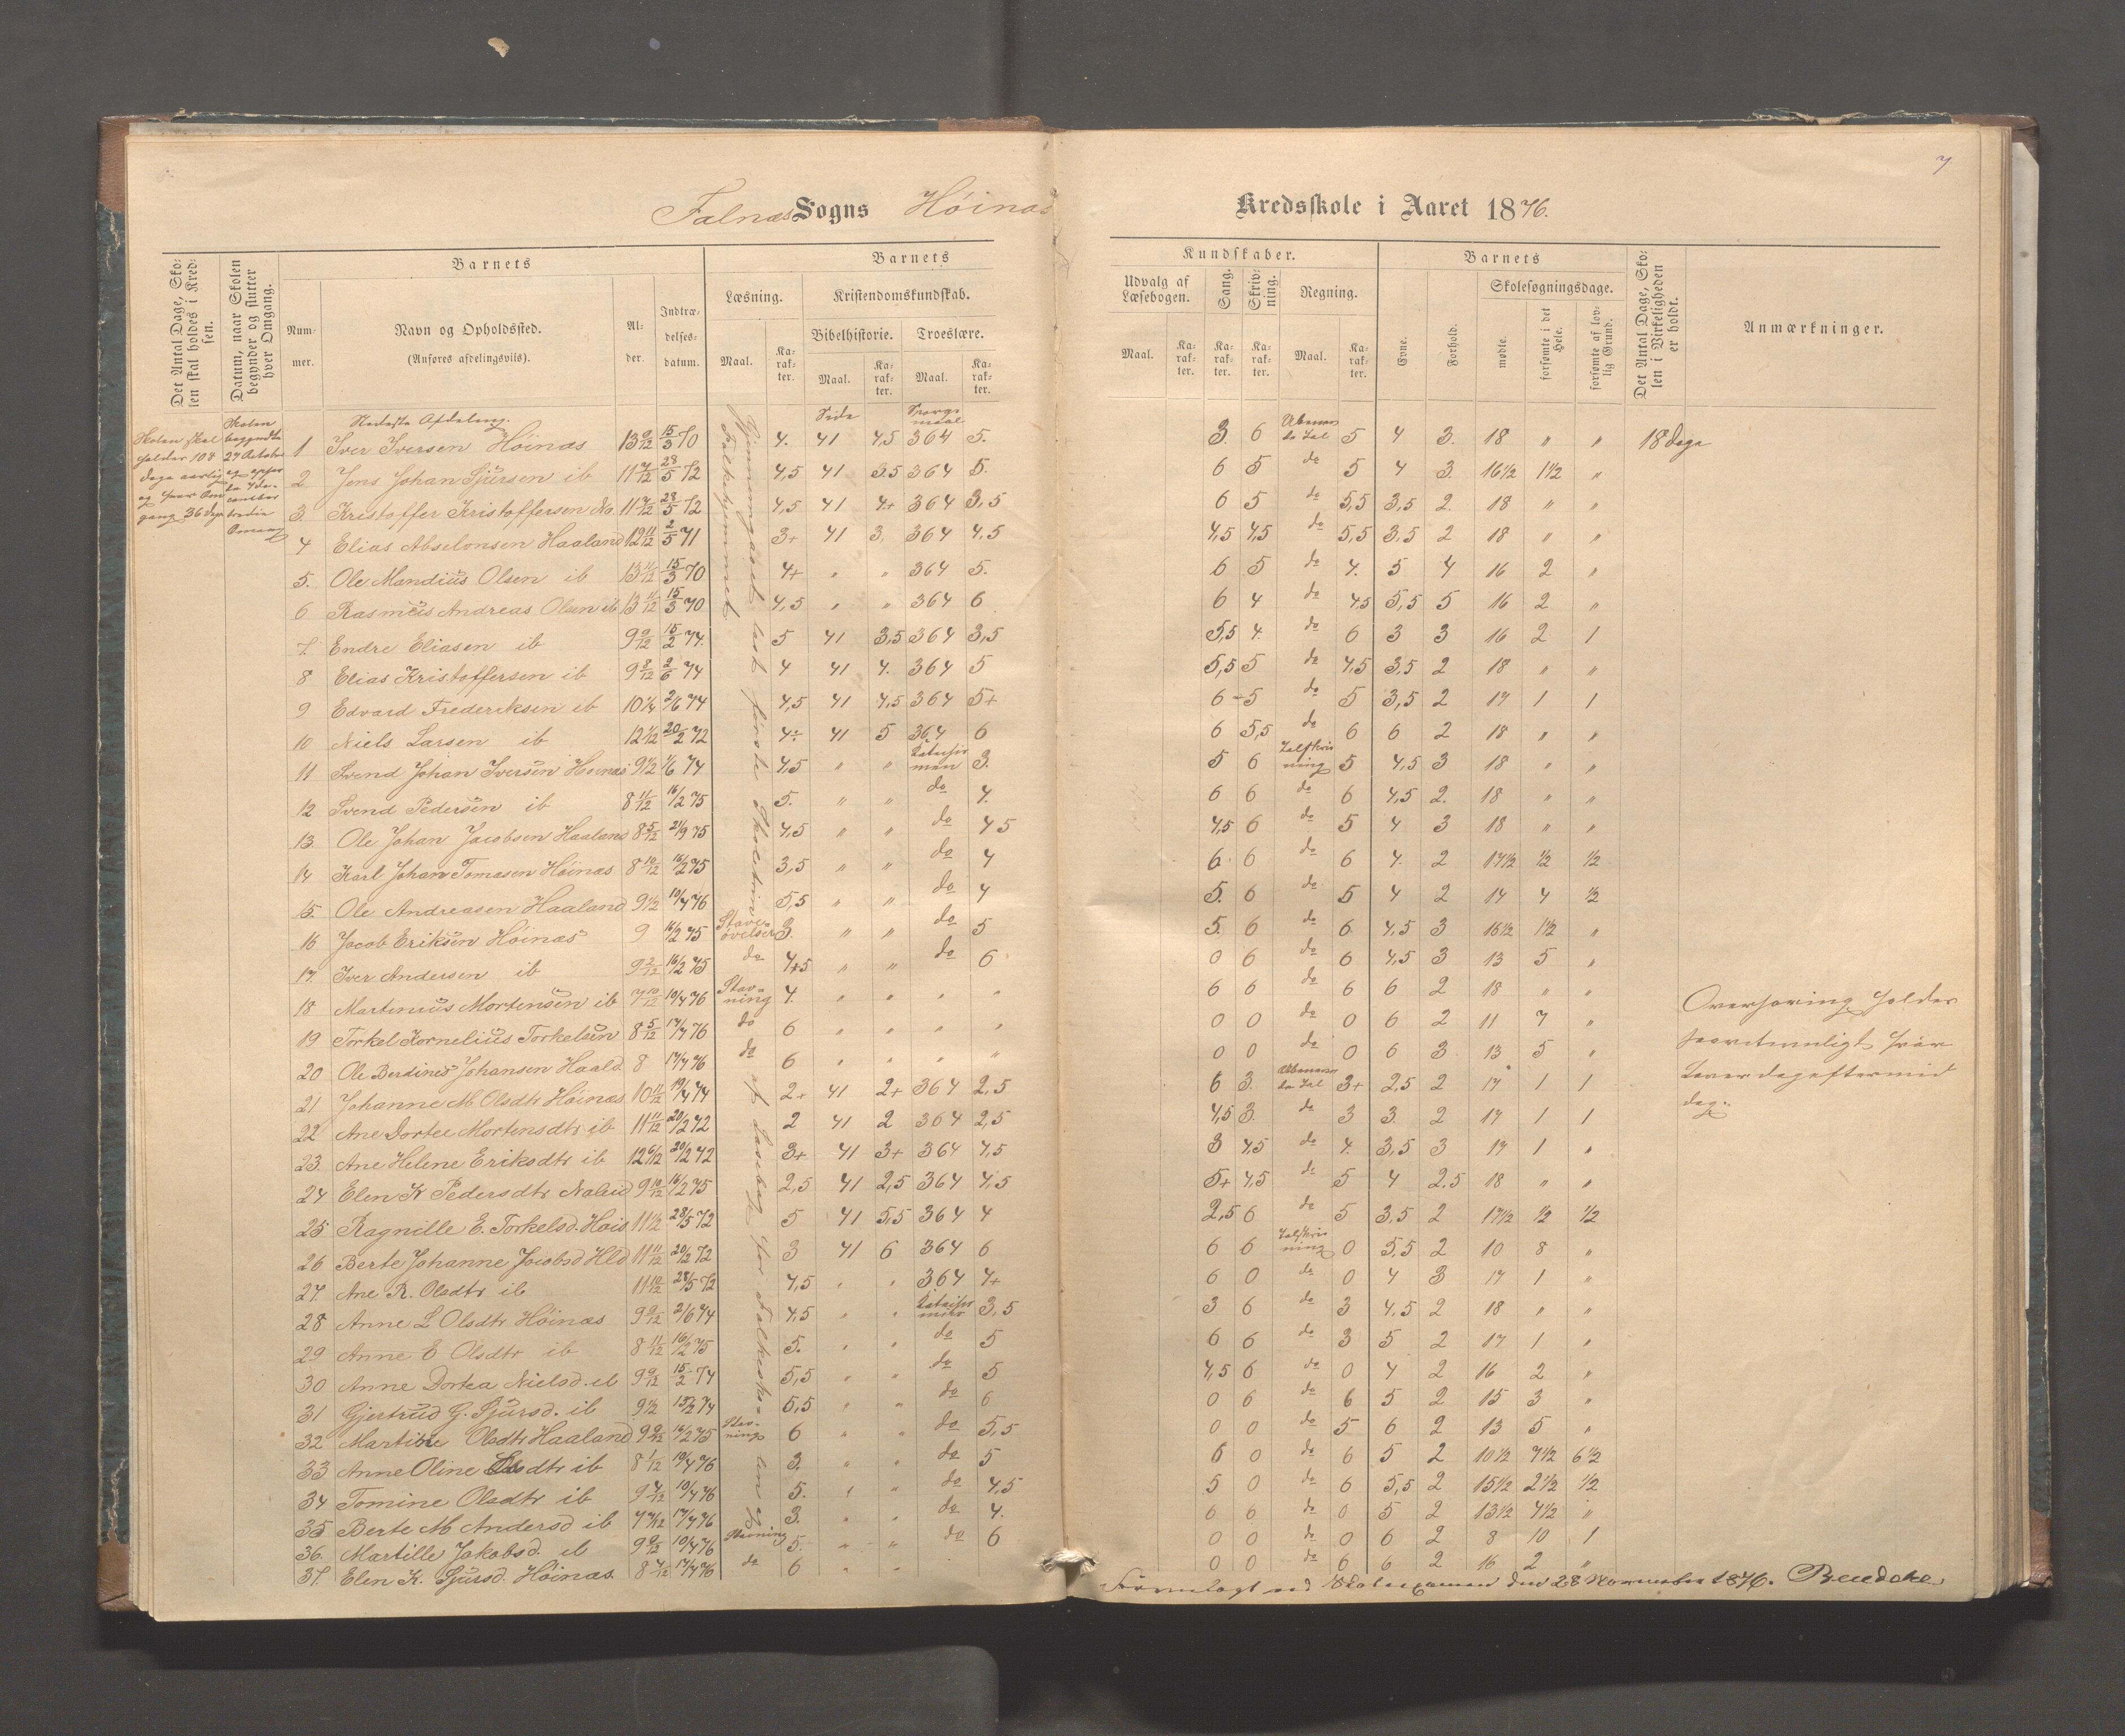 7
Falnæs Sogns Høinæs Kredsskole i Aaret 1876.
Det Antal Dage, Skolen skal holdes i Kredsen.
Datum, naar Skolen begynder og slutter hver Omgang.
Barnets
Nummer.
Navn og Opholdssted.
(Anføres afdelingsviis).
Alder.
Indtrædelsesdatum.
Barnets
Læsning.
Maal.
Karakter.
Kristendomskundskab.
Bibelhistorie.
Maal.
Karakter.
Troeslære.
Maal.
Karakter.
Kundskaber.
Udvalg af Læsebogen.
Maal.
Karakter.
Sang.
Karakter.
Skrivning.
Karakter.
Regning.
Maal.
Karakter.
Barnets
Evne.
Forhold.
Skolesøgningsdage.
mødte.
forsømte i det Hele.
forsømte af lovlig Grund.
Det Antal Dage, Skolen i Virkeligheden er holdt.
Anmærkninger.
Skolen skal holdes 108 dage aarlig og hver Omgang 36 dage
Skolen begyndte 27 October
Nedeste Afdeling.
Side
Spørgsmaal
1 Iver Iversen Høinæs 13 9/12 15/3 70 4. 41 4,5 364 5. 3. 6 5 4 3. 18 " " 18 dage
2 Jens Johan Sjursen ib 11 7/12 28/5 72 4,5 41 3.5 364 5. 6 5 do 5 4 3. 16 1/2 1 1/2 "
3. Kristoffer Kristoffersen 11 7/12 28/5 72 4,5 41 4+ 364 3,5 6 5 do 5,5 3,5 2. 18 " "
4 Elias Abselonsen Haaland 12 11/12 2/5 71 3+ 41 3. 364 4.5 4,5 4,5 do 5,5 3,5 2 18 " "
5. Ole Mandius Olsen ib 13 11/12 15/3 70 4+ " " 364 5. 6 5 do 4. 5 4 16 2 "
6 Rasmus Andreas Olsen ib 13 11/12 15/3 70 4,5 " " 364 6 6 4 do 4,5 5,5 5 16 2 "
7. Endre Eliasen ib 9 9/12 15/2 74. 5 41 3,5 364 3,5 5,5 4. do 6 3 3 16 2 1
8 Elias Kristoffersen ib 9 8/12 2/6 74 4 41 4. 364 5 5,5 5 do 4,5 3,5 2 18 " "
9 Edvard Frederiksen ib 10 1/4 2/6 74 4,5 41 4,5 364 5+ 6 - 5 do 5 3,5 2 17 1 1
10 Niels Larsen ib 12 1/2 20/2 72 4÷ 41 5 364 6 6 5,5 do 6 6 2 18 " "
11 Svend Johan Iversen Høinæs 9 1/2 1/6 74 4,5 " " 3. 5 6 Talskrivning 5 4,5 3 18 " "
12 Svend Pedersen ib 8 11/12 16/2 75 5. " " do 4. 6 6 do 6 4,5 2. 18 " "
13. Ole Johan Jacobsen Haaland 8 5/12 21/9 75 4,5 " " do 4 5 4,5 6 do 5 4 3 18 " "
14 Karl Johan Tomasen Høinæs 8 10/12 16/2 75 3,5 " " do 4 6 6 do 6 4. 2 17 1/2 1/2 1/2
15. Ole Andreasen Haaland 9 1/2 10/4 76 5,5 " " do 4 5. 6 do 5 4 2 14 4 1/2
16 Jacob Eriksen Høinæs 9 16/2 75 Staveøvelser 3. " " do 5 5 6 do 6 4,5 3 16 1/2 1 1/2 "
17. Iver Andersen ib 9 2/12 16/2 75 do 4,5 " " do 6 0 6 do 6 4,5 3 13 5 "
18 Martinius Mortensen ib 7 10/12 10/4 76 Stavning 4. " " " " 6 6 do 6 6 2 18 " "
19 Torkel Kornelius Torkelsen 8 5/12 17/4 76 do 6 " " " " 0 0 do 0 6 2 11 7 "
20 Ole Berdines Johansen Haald 8 17/4 76 do 6 " " " " 0 0 do 0 6 3 13 5 "
21 Johanne M Olsdtr Høinæs 10 11/12 19/4 74 2+ 41 2+ 364 2,5 6 3. 3+ 2,5 2 17 1 1
22 Ane Dortee Mortensdtr ib 11 11/12 20/2 72 2 41 2 364 2,5 4,5 3. do 3 3. 2 17 1 1
23. Ane Helene Eriksdtr ib 12 6/12 20/2 72 3+ 41 3+ 364 4,5 3 4,5 do 4. 3,5 3 17 1 "
24 Elen K Pedersdtr 9 10/12 16/2 75 2,5 41 2,5 364 4,5 5+ 4,5 do 5 4 2.5 18 " "
25 Ragnille E. Torkelsd. Høis 11 1/2 28/5 72 5 41 5,5 364 4 2,5 6 do 5 3,5 2 17 1/2 1/2 1/2
26 Berte Johanne Jacobsd Hld 11 11/12 20/2 72 3 41 6 364 6 6 6 Talskrivning 0 5,5 2 10 8 "
27. Ane R. Olsdtr ib 11 10/12 28/5 72 4,5 " " 364 4+ 6 0 do 0 4 3 17 1 "
28 Anne L Olsdtr Høinæs 9 9/12 2/6 74 4,5 " " 3,5 3 6 do 3 4,5 2 18 " "
29 Anne E Olsdtr ib 8 11/12 16/2 75 5. " " do 5 6 6 do 3 5 2 17 1 "
30 Anne Dortea Nielsd. ib 9 9/12 15/2 74 5,5 " " do 5 4,5 6 do 0 4 2 16 2 "
31 Gjertrud G. Sjursd. ib 9 1/2 15/2 74 5,5 " " do 6 0 6 do 6 5 2 15 3 "
32 Martine Olsdtr Haaland 9 9/12 16/2 75 Stavning 6 " " do 5,5 0 0 do 5 6 2 13 5 "
33 Anne Oline Olsdtr ib 8 1/12 19/4 76 3. " " do 5 6 0 do 6 5 2 10 1/2 7 1/2 6 1/2
34 Tomine Olsdtr ib 9 7/12 10/4 76 5. " " do 4,5 5 0 do 6 5,5 2 15 1/2 2 1/2 1/2
35 Berte M Andersd ib 7 7/12 17/4 76 3. " " do 4. 6 6 do 0 5 2 13 1/2 4 1/2 "
36. Martille Jakobsd. ib 9 9/12 10/4 76 Stavning 5. " " do 6 0 0 do 0 6 2 8 10 1
37. Elen K. Sjursd. Høinæs 8 7/12 17/4 76 do 6 " " 0 0 do 6 6 2 16 2 "
Gjennemgaaet læst første Skoletrin af Læsebog for Folkeskolen og
Folkehjemmet
Overhøring holdes
hver
Løverdageftermid
dag.
Fremlagt ved Skoleexamen den 28 November 1876.